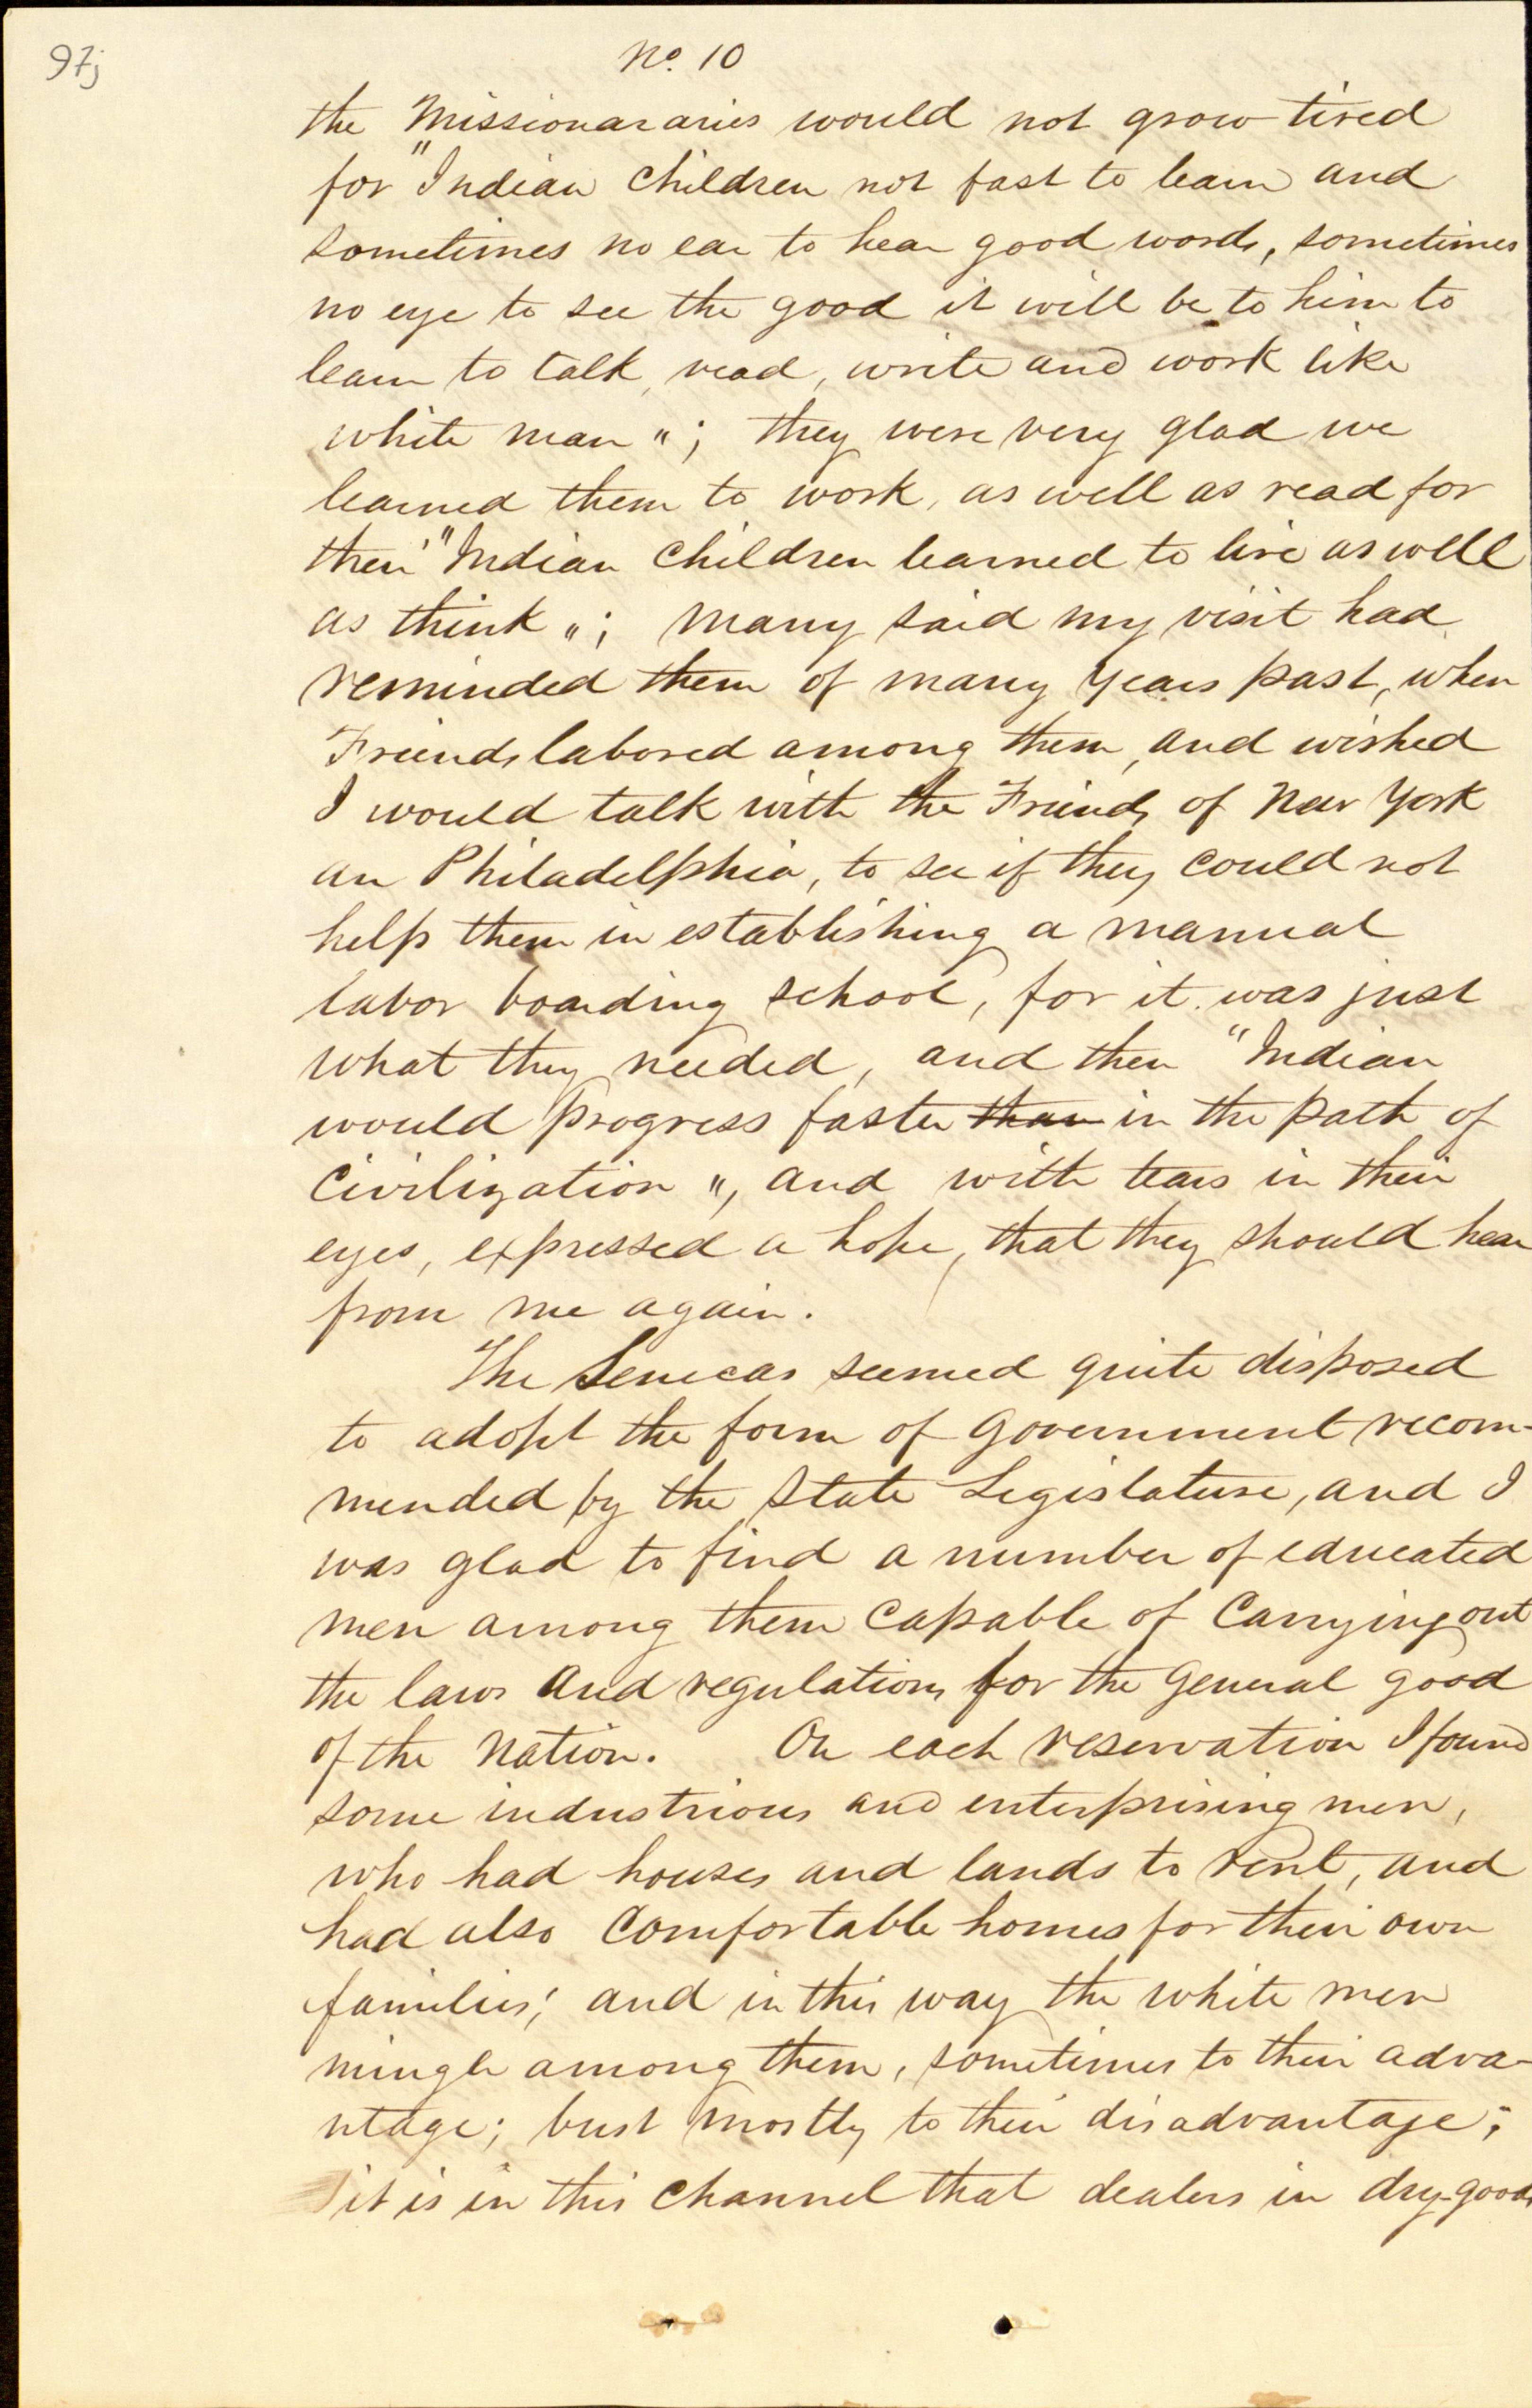 97j
No. 10
the Missionararies would not grow tired
for "Indian Children not fast to learn and
sometimes no ear to hear good words, sometimes
no eye to see the good it will be to him to
learn to talk, read, write and work like
white man"; they were very glad we
learned them to work, as well as read for
then "Indian Children learned to live as well
as think"; many said my visit had
reminded them of many years past, when
Friends labored among them, and wished
I would talk with the Friends of New York
an Philadelphia, to see if they could not
help them in establishing a manual
labor boarding school, for it was just
what they needed, and then "Indian
would progress faster than in the path of
Civilization", and with tears in their
eyes, expressed a hope, that they should hear
from me again.
The Senecas seemed quite disposed
to adopt the form of Government recom-
mended by the State Legislature, and I
was glad to find a number of educated
men among them Capable of Carrying out
the laws and regulations for the General good
of the Nation. On each reservation I found
some industrious and enterprising men,
who had houses and lands to rent, and
had also Comfortable homes for their own
families; and in this way the white men
mingle among them, sometimes to their adva-
ntage; bust mostly to their disadvantage;
it is in this Channel that dealers in dry-goods